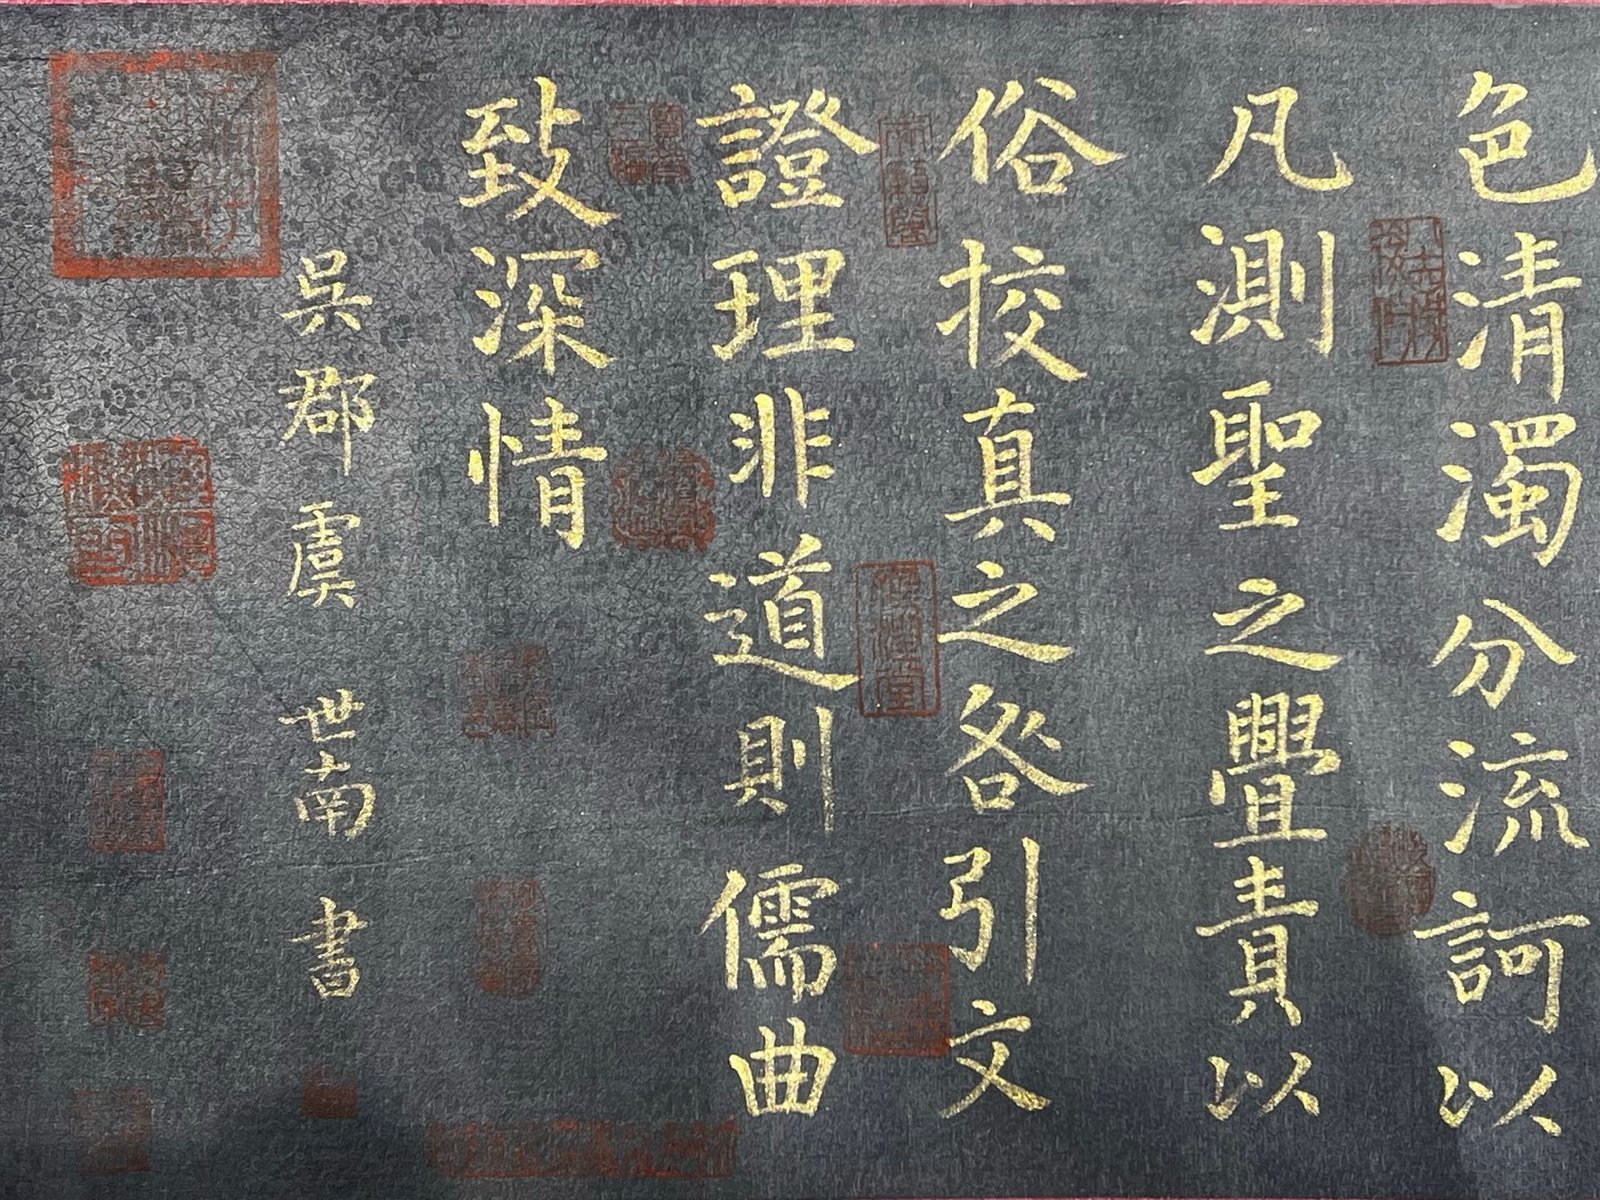 色清濁分流訶以
凡測聖之舋責以
俗挍真之咎引文
證理非道則儒曲
致深情
吳郡虞世南書